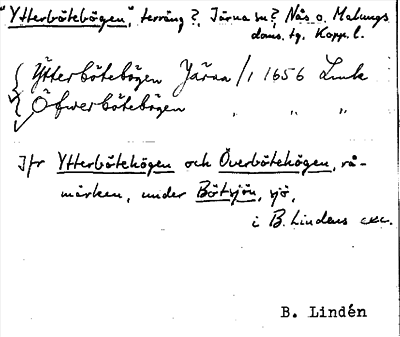 "Ytterbötebögen", terräng?, Järna sn?, Nås o. Malungs
doms. tg. Kopp. l.
Ytterbötebögen Järna /1 1656 Lmk
Öfwerbötebögen " " "
Jfr Ytterbötehögen och Överbötehögen, rå-
märken, under Bötsjön, sjö,
i B. Lindens exc.
B. Lindén